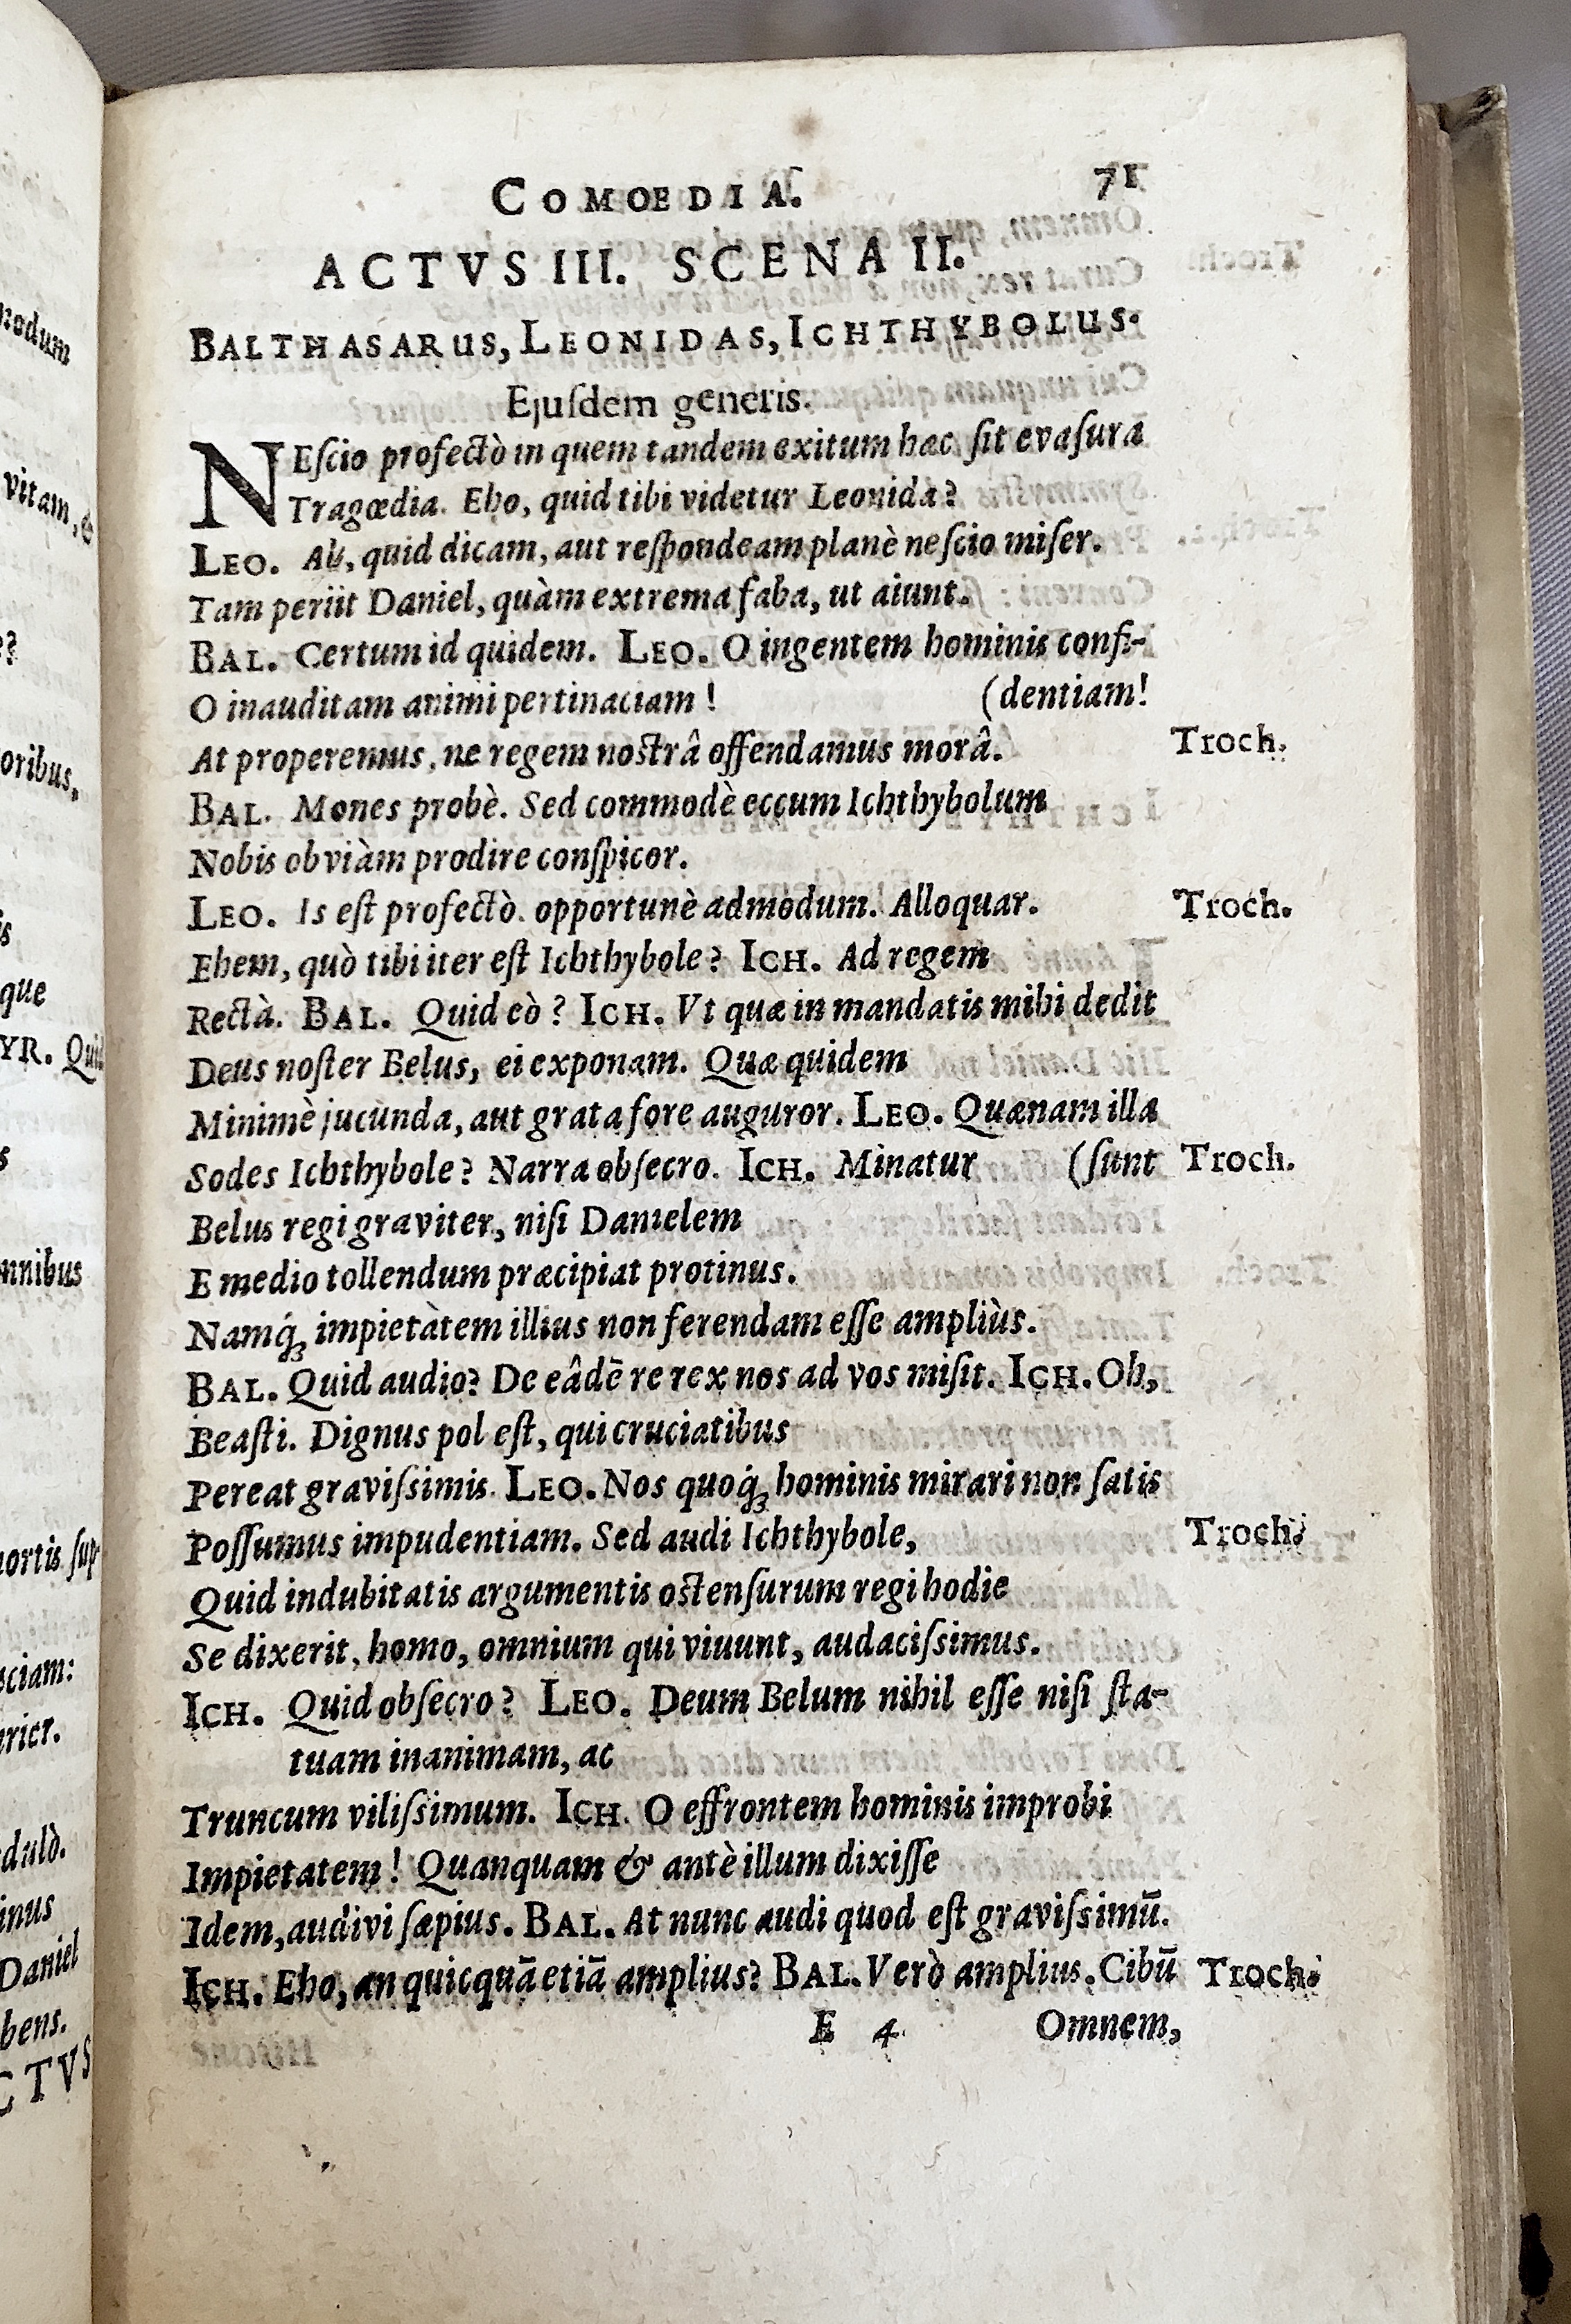 COMOEDIA. 71
ACTVS III. SCENA II.
BALTHASARUS, LEONIDAS, ICHTHYBOLUS.
Ejuſdem generis.
NEſcio profectò in quem tandem exitum hæc ſit evaſura
Tragœdia. Eho, quid tibi videtur Leonida?
LEO. Ah, quid dicam, aut reſpondeam planè neſcio miſer.
Tam periit Daniel, quàm extrema faba, ut aiunt.
BAL. Certum id quidem. LEO. O ingentem hominis confi-
O inauditam animi pertinaciam! (dentiam!
At properemus, ne regem noſtrâ offendamus morâ. Troch.
BAL. Mones probè. Sed commodè eccum Ichthybolum
Nobis obviàm prodire conſpicor.
LEO. Is eſt profectò. opportunè admodum. Alloquar. Troch.
Ehem, quò tibi iter eſt Ichthybole? ICH. Ad regem
Rectà. BAL. Quid eò? ICH. Vt quæ in mandatis mihi dedit
Deus noſter Belus, ei exponam. Quæ quidem
Minimè jucunda, aut grata fore auguror. LEO. Quænam illa
Sodes Ichthybole? Narra obſecro. ICH. Minatur (ſunt Troch.
Belus regi graviter, niſi Danielem
E medio tollendum præcipiat protinus.
Namq́; impietàtem illius non ferendam eſſe ampliùs.
BAL. Quid audio? De eâdē re rex nos ad vos miſit. ICH. Oh,
Beaſti. Dignus pol eſt, qui cruciatibus
Pereat graviſsimis. LEO. Nos quoq́; hominis mirari non ſatis
Poſſumus impudentiam. Sed audi Ichthybole, Troch.
Quid indubitatis argumentis oſtenſurum regi hodie
Se dixerit, homo, omnium qui viuunt, audaciſsimus.
ICH. Quid obſecro? LEO. Deum Belum nihil eſſe niſi ſta-
tuam inanimam, ac
Truncum viliſsimum. ICH. O effrontem hominis improbi
Impietatem! Quanquam & antè illum dixiſſe
Idem, audivi ſæpius. BAL. At nunc audi quod eſt graviſsimū.
ICH. Eho, an quicquā etiā amplius? BAL. Verò amplius. Cibū Troch.
E 4 Omnem,